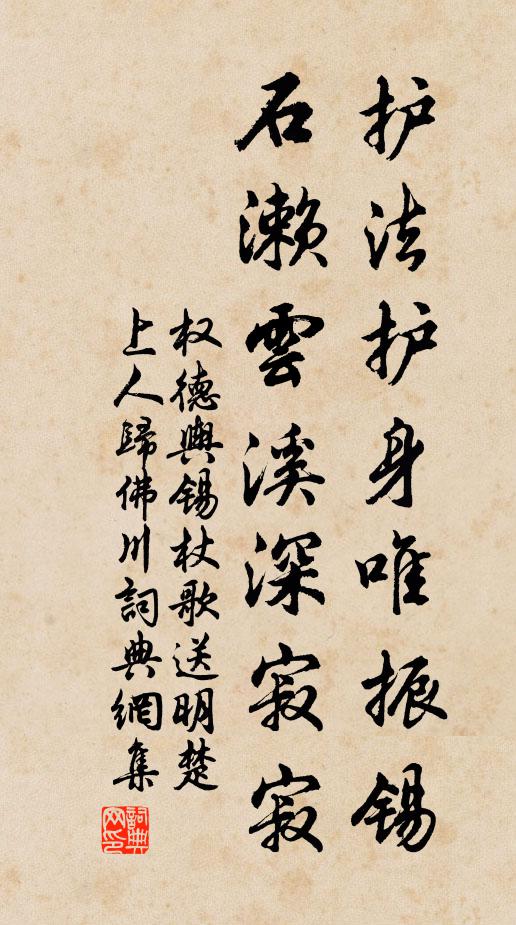 护法护身唯振锡
石濑雲溪深寂寂
权德輿锡杖歌送明楚
上人歸佛川詞典網集
詞典网印